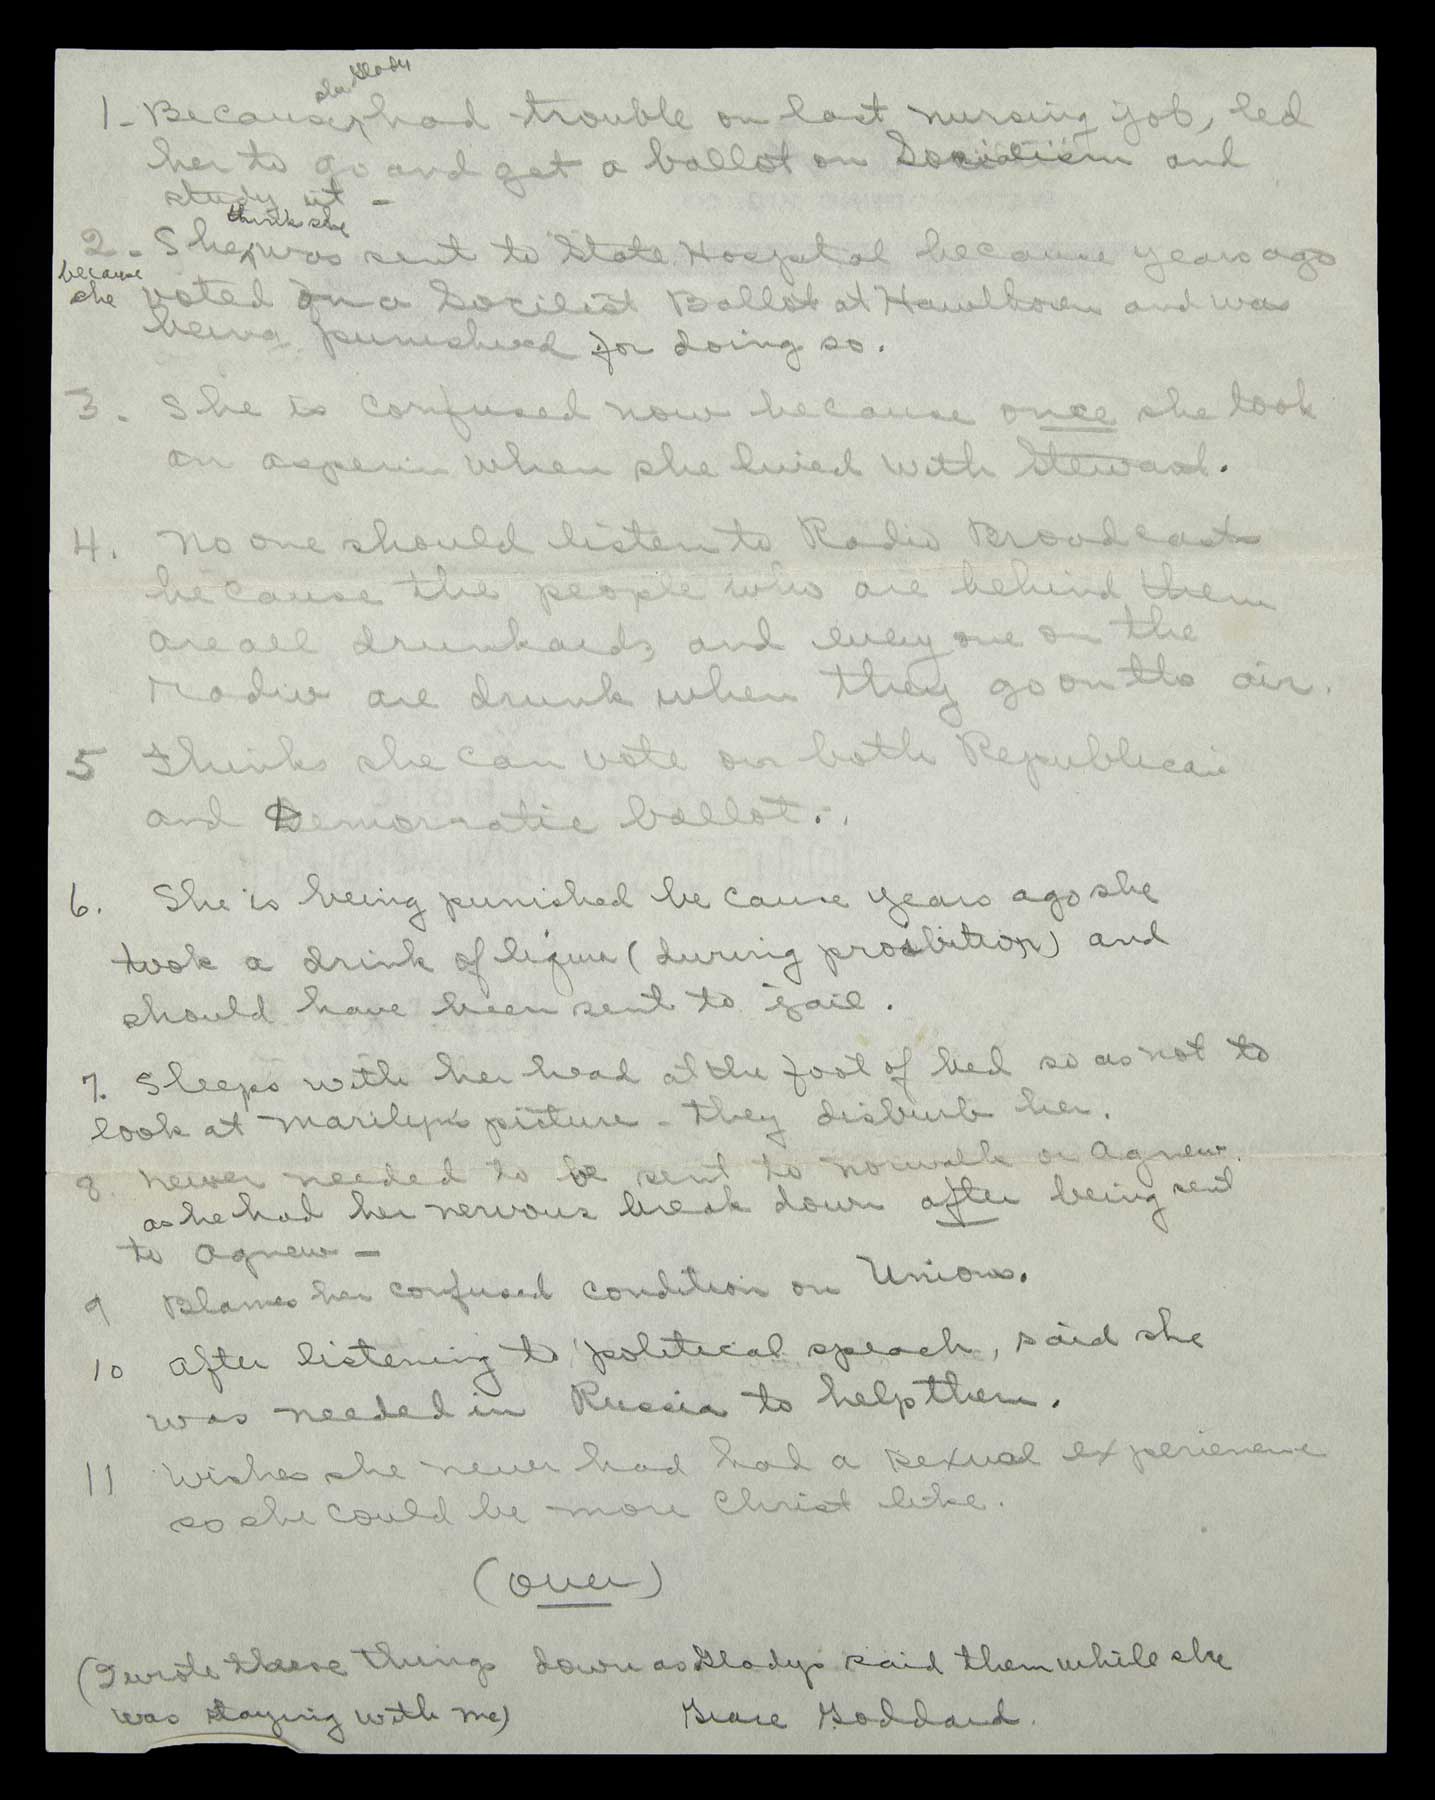 she Glady
1- Because had trouble on last nursing job, led
her to go and get a ballot on Socialism and
study it -
think she
2- She was sent to State Hospital because years ago
because
she voted on a Socilist Ballot at Hawthorn and was
being punished for doing so.
3. She is confused now because once she took
an asperin when she lived with Steward.
4. No one should listen to Radio Broadcasts
because the people who are behind them
are all drunkards and every one on the
Radio are drunk when they go on the air.
5 Thinks she can vote on both Republican
and Democratic ballot..
6. She is being punished because years ago she
took a drink of liquor (during proibition) and
should have been sent to jail.
7. Sleeps with her head at the foot of bed so as not to
look at Marilyn's picture - they disturb her.
8 Never needed to be sent to Norwalk or Agnew.
as he had her nervous break down after being sent
to Agnew -
9 Blames her confused condition on Unions.
10 After listening to political speach, said she
was needed in Russia to help them.
11 Wishes she never had had a sexual experience
so she could be more Christ like.
(over)
(I wrote these things down as Gladys said them while she
was staying with me) Grace Goddard.